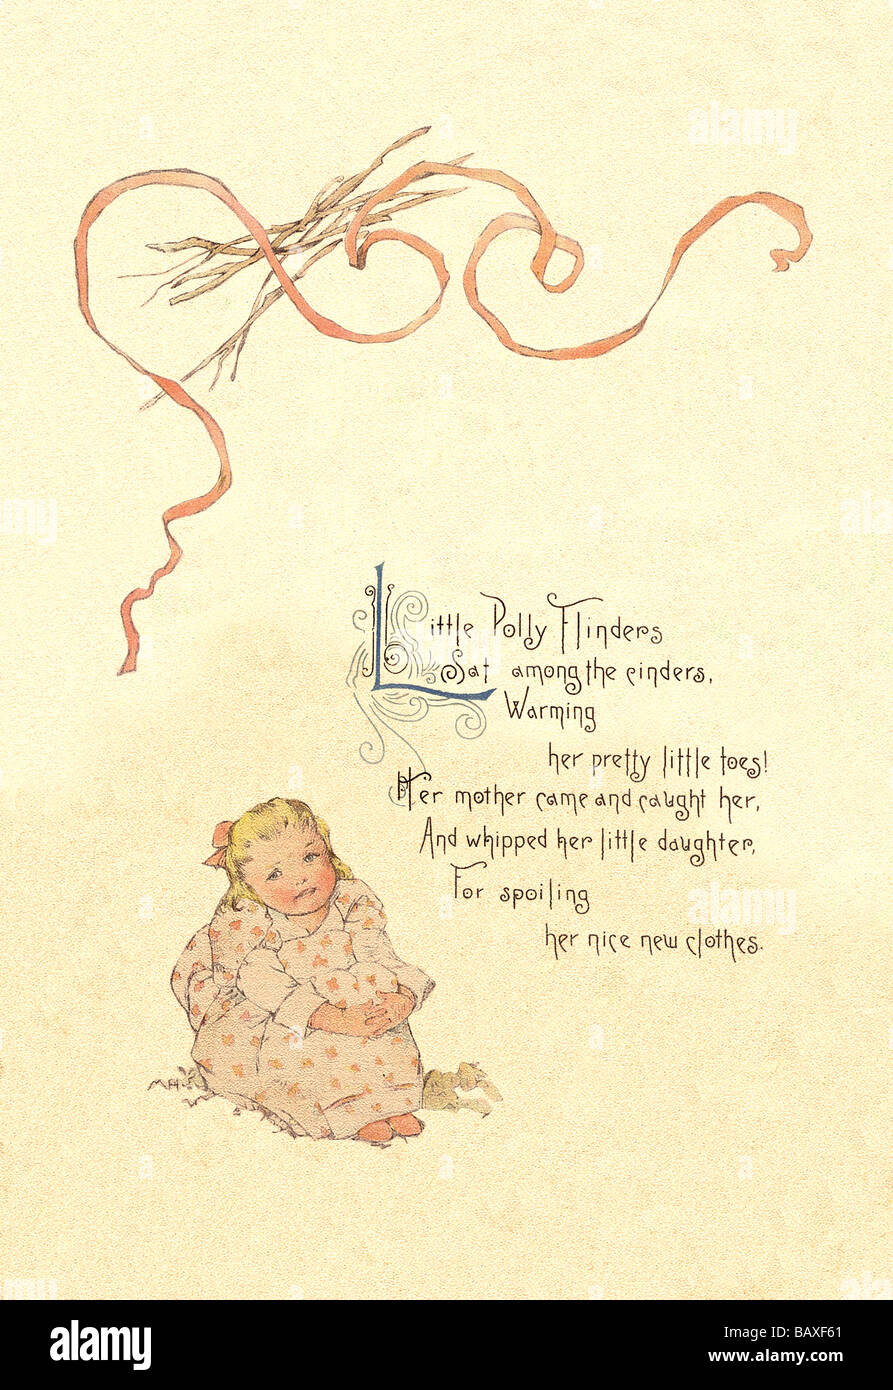 alamy
Little Polly Flinders
Sat among the cinders,
Warming
her pretty little toes!
Her mother came and caught her,
And whipped her little daughter,
For spoiling
her nice new clothes.
MH
alamy
Image ID: BAXF61
www.alamy.com